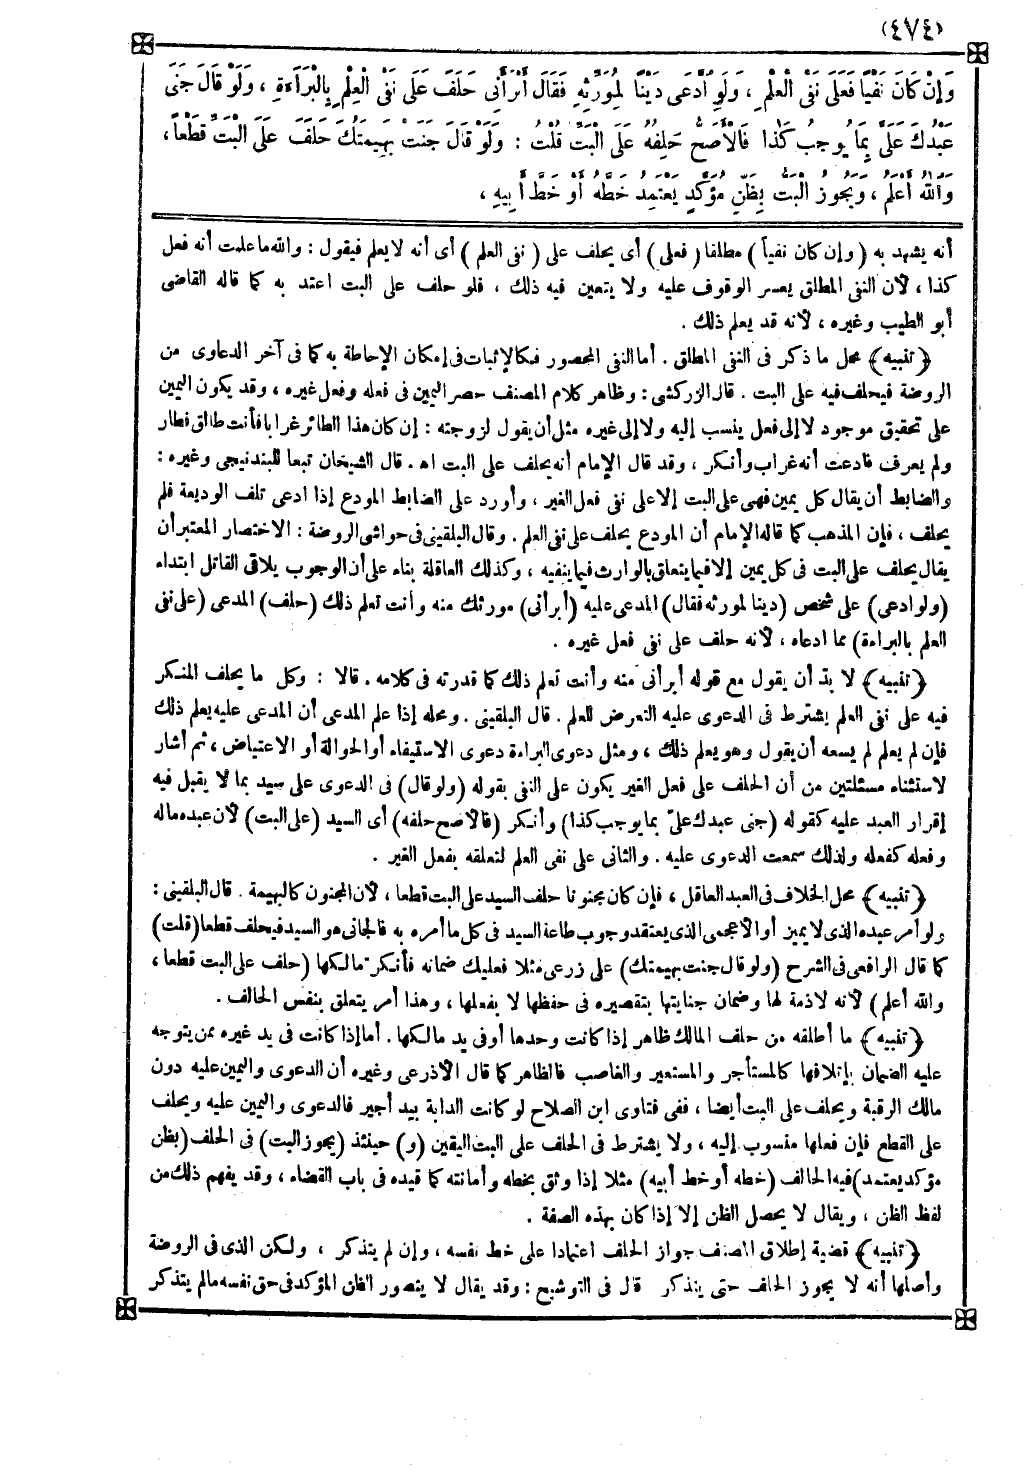 (٤٧٤)
وَإِنْ كَانَ نَفْيًا فَعَلَى نَفْىِ الْعِلْمِ ، وَلَوِ ادَّعَى دَيْنًا لِمُوَرِّثِهِ فَقَالَ أَبْرَأَنِى حَلَفَ عَلَى نَفْىِ الْعِلْمِ بِالْبَرَاءَةِ ، وَلَوْ قَالَ جَنَى
عَبْدُكَ عَلَىَّ بِمَا يُوجِبُ كَذَا فَالْأَصَحُّ حَلِفُهُ عَلَى الْبَتِّ قُلْتُ : وَلَوْ قَالَ جَنَتْ بَهِيمَتُكَ حَلَفَ عَلَى الْبَتِّ قَطْعًا ،
وَاللهُ أَعْلَمُ ، وَيَجُوزُ الْبَتُّ بِظَنٍّ مُؤَكَّدٍ يَعْتَمِدُ خَطَّهُ أَوْ خَطَّ أَبِيهِ ،
أنه يشهد به (وإن كان نفياً) مطلقا (فعلى) أى يحلف على (نفى العلم) أى أنه لا يعلم فيقول : والله ما علمت أنه فعل
كذا ، لأن النفى المطلق يعسر الوقوف عليه ولا يتعين فيه ذلك ، فلو حلف على البت اعتد به كما قاله القاضى
أبو الطيب وغيره ، لأنه قد يعلم ذلك .
﴿تنبيه﴾ محل ما ذكر فى النفى المطلق . أما النفى المحصور فكالإثبات فى إمكان الإحاطة به كما فى آخر الدعاوى من
الروضة فيحلف فيه على البت . قال الزركشى : وظاهر كلام المصنف حصر اليمين فى فعله وفعل غيره ، وقد يكون اليمين
على تحقيق موجود لا إلى فعل ينسب إليه ولا إلى غيره مثل أن يقول لزوجته : إن كان هذا الطائر غرابا فأنت طالق فطار
ولم يعرف فادعت أنه غراب وأنكر ، وقد قال الإمام أنه يحلف على البت اه . قال الشيخان تبعا للبندنيجى وغيره :
والضابط أن يقال كل يمين فهى على البت إلا على نفى فعل الغير ، وأورد على الضابط المودع إذا ادعى تلف الوديعة فلم
يحلف ، فإن المذهب كما قاله الإمام أن المودع يحلف على نفى العلم . وقال البلقينى فى حواشى الروضة : الاختصار المعتبر أن
يقال يحلف على البت فى كل يمين إلا فيما يتعلق بالوارث فيما ينفيه ، وكذلك العاقلة بناء على أن الوجوب يلاقى القاتل ابتداء
(ولو ادعى) على شخص (دينا لمورثه فقال) المدعى عليه (أبرأنى) مورثك منه وأنت تعلم ذلك (حلف) المدعى (على نفى
العلم بالبراءة) مما ادعاه ، لأنه حلف على نفى فعل غيره .
﴿تنبيه﴾ لا بدّ أن يقول مع قوله أبرأنى منه وأنت تعلم ذلك كما قدرته فى كلامه . قالا : وكل ما يحلف المنكر
فيه على نفى العلم يشترط فى الدعوى عليه التعرض للعلم . قال البلقينى . ومحله إذا علم المدعى أن المدعى عليه يعلم ذلك
فإن لم يعلم لم يسعه أن يقول وهو يعلم ذلك ، ومثل دعوى البراءة دعوى الاستيفاء أو الحوالة أو الاعتياض ، ثم أشار
لاستثناء مسئلتين من أن الحلف على فعل الغير يكون على النفى بقوله (ولو قال) فى الدعوى على سيد بما لا يقبل فيه
إقرار العبد عليه كقوله (جنى عبدك علىّ بما يوجب كذا) وأنكر (فالأصح حلفه) أى السيد (على البت) لأن عبده ماله
وفعله كفعله ولذلك سمعت الدعوى عليه . والثانى على نفى العلم لتعلقه بفعل الغير .
﴿تنبيه﴾ محل الخلاف فى العبد العاقل ، فإن كان مجنونا حلف السيد على البت قطعا ، لأن المجنون كالبهيمة . قال البلقينى :
ولو أمر عبده الذى لا يميز أو الأعجمى الذى يعتقد وجوب طاعة السيد فى كل ما أمره به فالجانى هو السيد فيحلف قطعا (قلت)
كما قال الرافعى فى الشرح (ولو قال جنت بهيمتك) على زرعى مثلا فعليك ضمانه فأنكر مالكها (حلف على البت قطعا ،
والله أعلم) لأنه لا ذمة لها وضمان جنايتها بتقصيره فى حفظها لا بفعلها ، وهذا أمر يتعلق بنفس الحالف .
﴿تنبيه﴾ ما أطلقه من حلف المالك ظاهر إذا كانت وحدها أو فى يد مالكها . أما إذا كانت فى يد غيره ممن يتوجه
عليه الضمان بإتلافها كالمستأجر والمستعير والغاصب فالظاهر كما قال الأذرعى وغيره أن الدعوى واليمين عليه دون
مالك الرقبة ويحلف على البت أيضا ، ففى فتاوى ابن الصلاح لو كانت الدابة بيد أجير فالدعوى واليمين عليه ويحلف
على القطع فإن فعلها منسوب إليه ، ولا يشترط فى الحلف على البت اليقين (و) حينئذ (يجوز البت) فى الحلف (بظن
مؤكد يعتمد) فيه الحالف (خطه أو خط أبيه) مثلا إذا وثق بخطه وأمانته كما قيده فى باب القضاء ، وقد يفهم ذلك من
لفظ الظن ، ويقال لا يحصل الظن إلا إذا كان بهذه الصفة .
﴿تنبيه﴾ قضية إطلاق المصنف جواز الحلف اعتمادا على خط نفسه ، وإن لم يتذكر ، ولكن الذى فى الروضة
وأصلها أنه لا يجوز الحلف حتى يتذكر قال فى التوشيح : وقد يقال لا يتصور الظن المؤكد فى حق نفسه مالم يتذكر